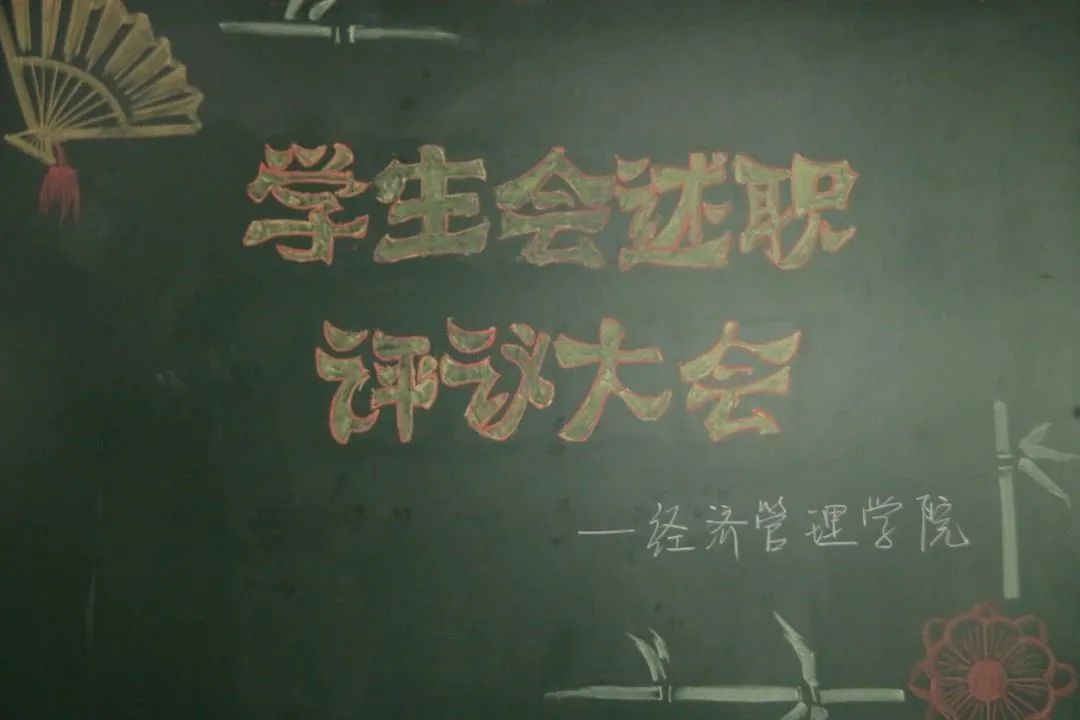 学生会述职
评议大会
—经济管理学院